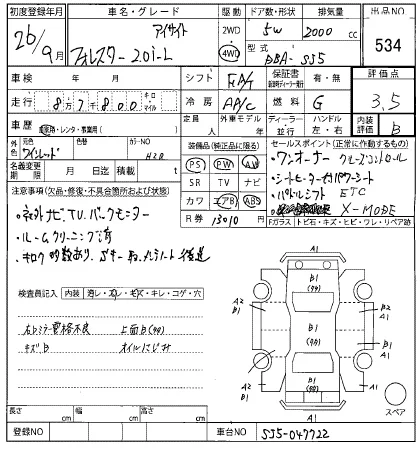 初度登録年月 車名・グレード 駆動 ドア数・形状 排気量 出品NO
26年9月 フォレスター 2.0i-L アイサイト 2WD 4WD 5W 2000cc 534
型式 DBA-SJ5
車検 年 月 シフト FAT 保証書 有・無 評価点 3.5
走行 87800 キロ マイル 冷房 AAC 燃料 G
車歴 自家用・レンタ・事業用( ) 定員 人 外車モデル 年 ディーラー 並行 ハンドル 左・右 内装評価 B
外色 元色 ワインレッド 色替 カラーNO H2Q
装備品(純正品に限る) セールスポイント(正常に作動するもの)
名義変更期限 月 日 積載 t
PS PW AW
SR TV ナビ
カワ エアB ABS
R券 13010
・ワンオーナー クルーズコントロール
・シートヒーター付パワーシート
・パドルシフト ETC
X-MODE
注意事項(欠品・修復・不具合箇所および状態)
・社外ナビTV.バックモニター
・ルームクリーニング済
Fガラス トビ石・キズ・ヒビ・ワレ・リペア跡
検査員記入 内装 汚レ・スレ・キズ・キレ・コゲ・穴
右ミラー電格不良 上面B(タナ)
キズB オイルにじみ
A1
B1
A2
B1
B1
B1
A2
B1
A1
スペア
長さ cm 幅 cm 高さ cm
登録NO 車台NO SJ5-047722